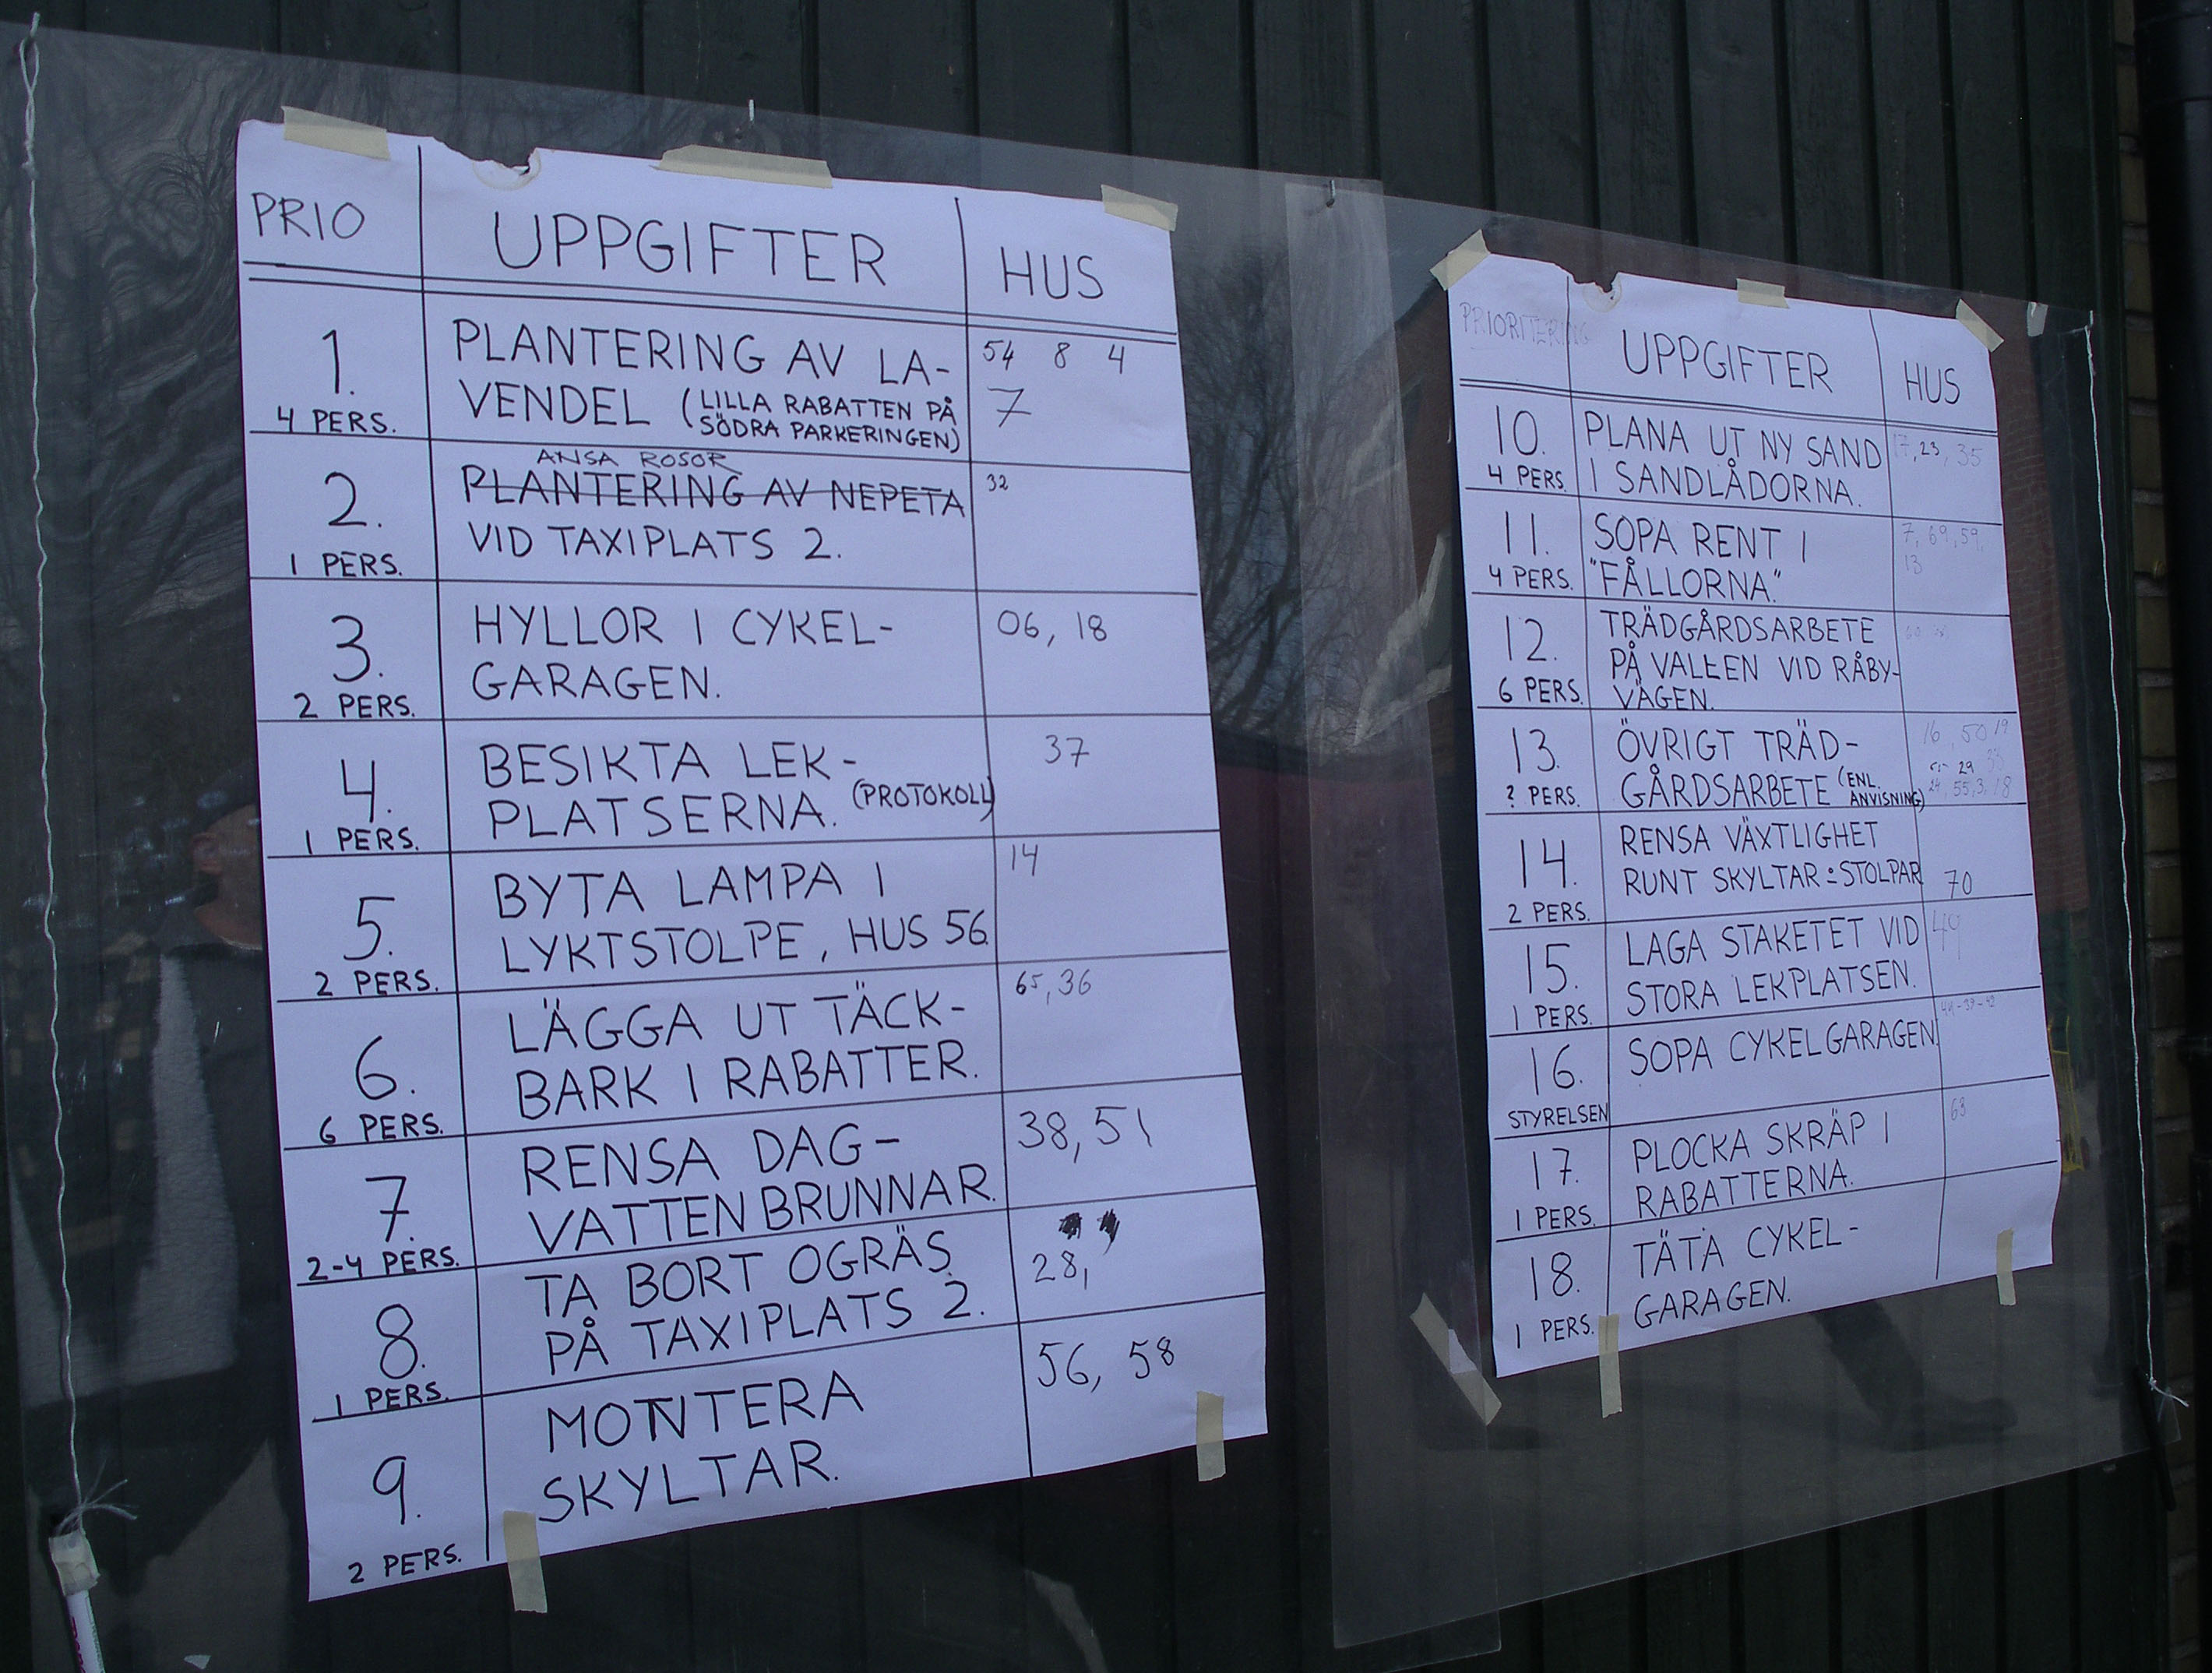 PRIO UPPGIFTER HUS
1. PLANTERING AV LA- 54 8 4
VENDEL (LILLA RABATTEN PÅ 7
4 PERS. SÖDRA PARKERINGEN)
ANSA ROSOR
2. PLANTERING AV NEPETA 32
VID TAXIPLATS 2.
1 PERS.
3. HYLLOR I CYKEL- 06, 18
GARAGEN.
2 PERS.
4. BESIKTA LEK- 37
PLATSERNA. (PROTOKOLL)
1 PERS.
5. BYTA LAMPA I 14
LYKTSTOLPE, HUS 56
2 PERS.
6. LÄGGA UT TÄCK- 65, 36
BARK I RABATTER.
6 PERS.
7. RENSA DAG- 38, 51
VATTENBRUNNAR.
2-4 PERS.
8. TA BORT OGRÄS
PÅ TAXIPLATS 2. 28,
1 PERS.
9. MONTERA 56, 58
SKYLTAR.
2 PERS.
PRIORITERING UPPGIFTER HUS
10. PLANA UT NY SAND 17, 23, 35
4 PERS. I SANDLÅDORNA.
11. SOPA RENT I 7, 69, 59,
4 PERS. "FÅLLORNA." 13
12. TRÄDGÅRDSARBETE
PÅ VALLEN VID RÅBY-
6 PERS. VÄGEN.
13. ÖVRIGT TRÄD- 16, 50 19
29 33
? PERS. GÅRDSARBETE (ENL. ANVISNING) 55, 3, 18
14. RENSA VÄXTLIGHET
RUNT SKYLTAR & STOLPAR 70
2 PERS.
15. LAGA STAKETET VID 49
STORA LEKPLATSEN.
1 PERS.
16. SOPA CYKELGARAGEN
STYRELSEN
17. PLOCKA SKRÄP I 63
RABATTERNA.
1 PERS.
18. TÄTA CYKEL-
GARAGEN.
1 PERS.